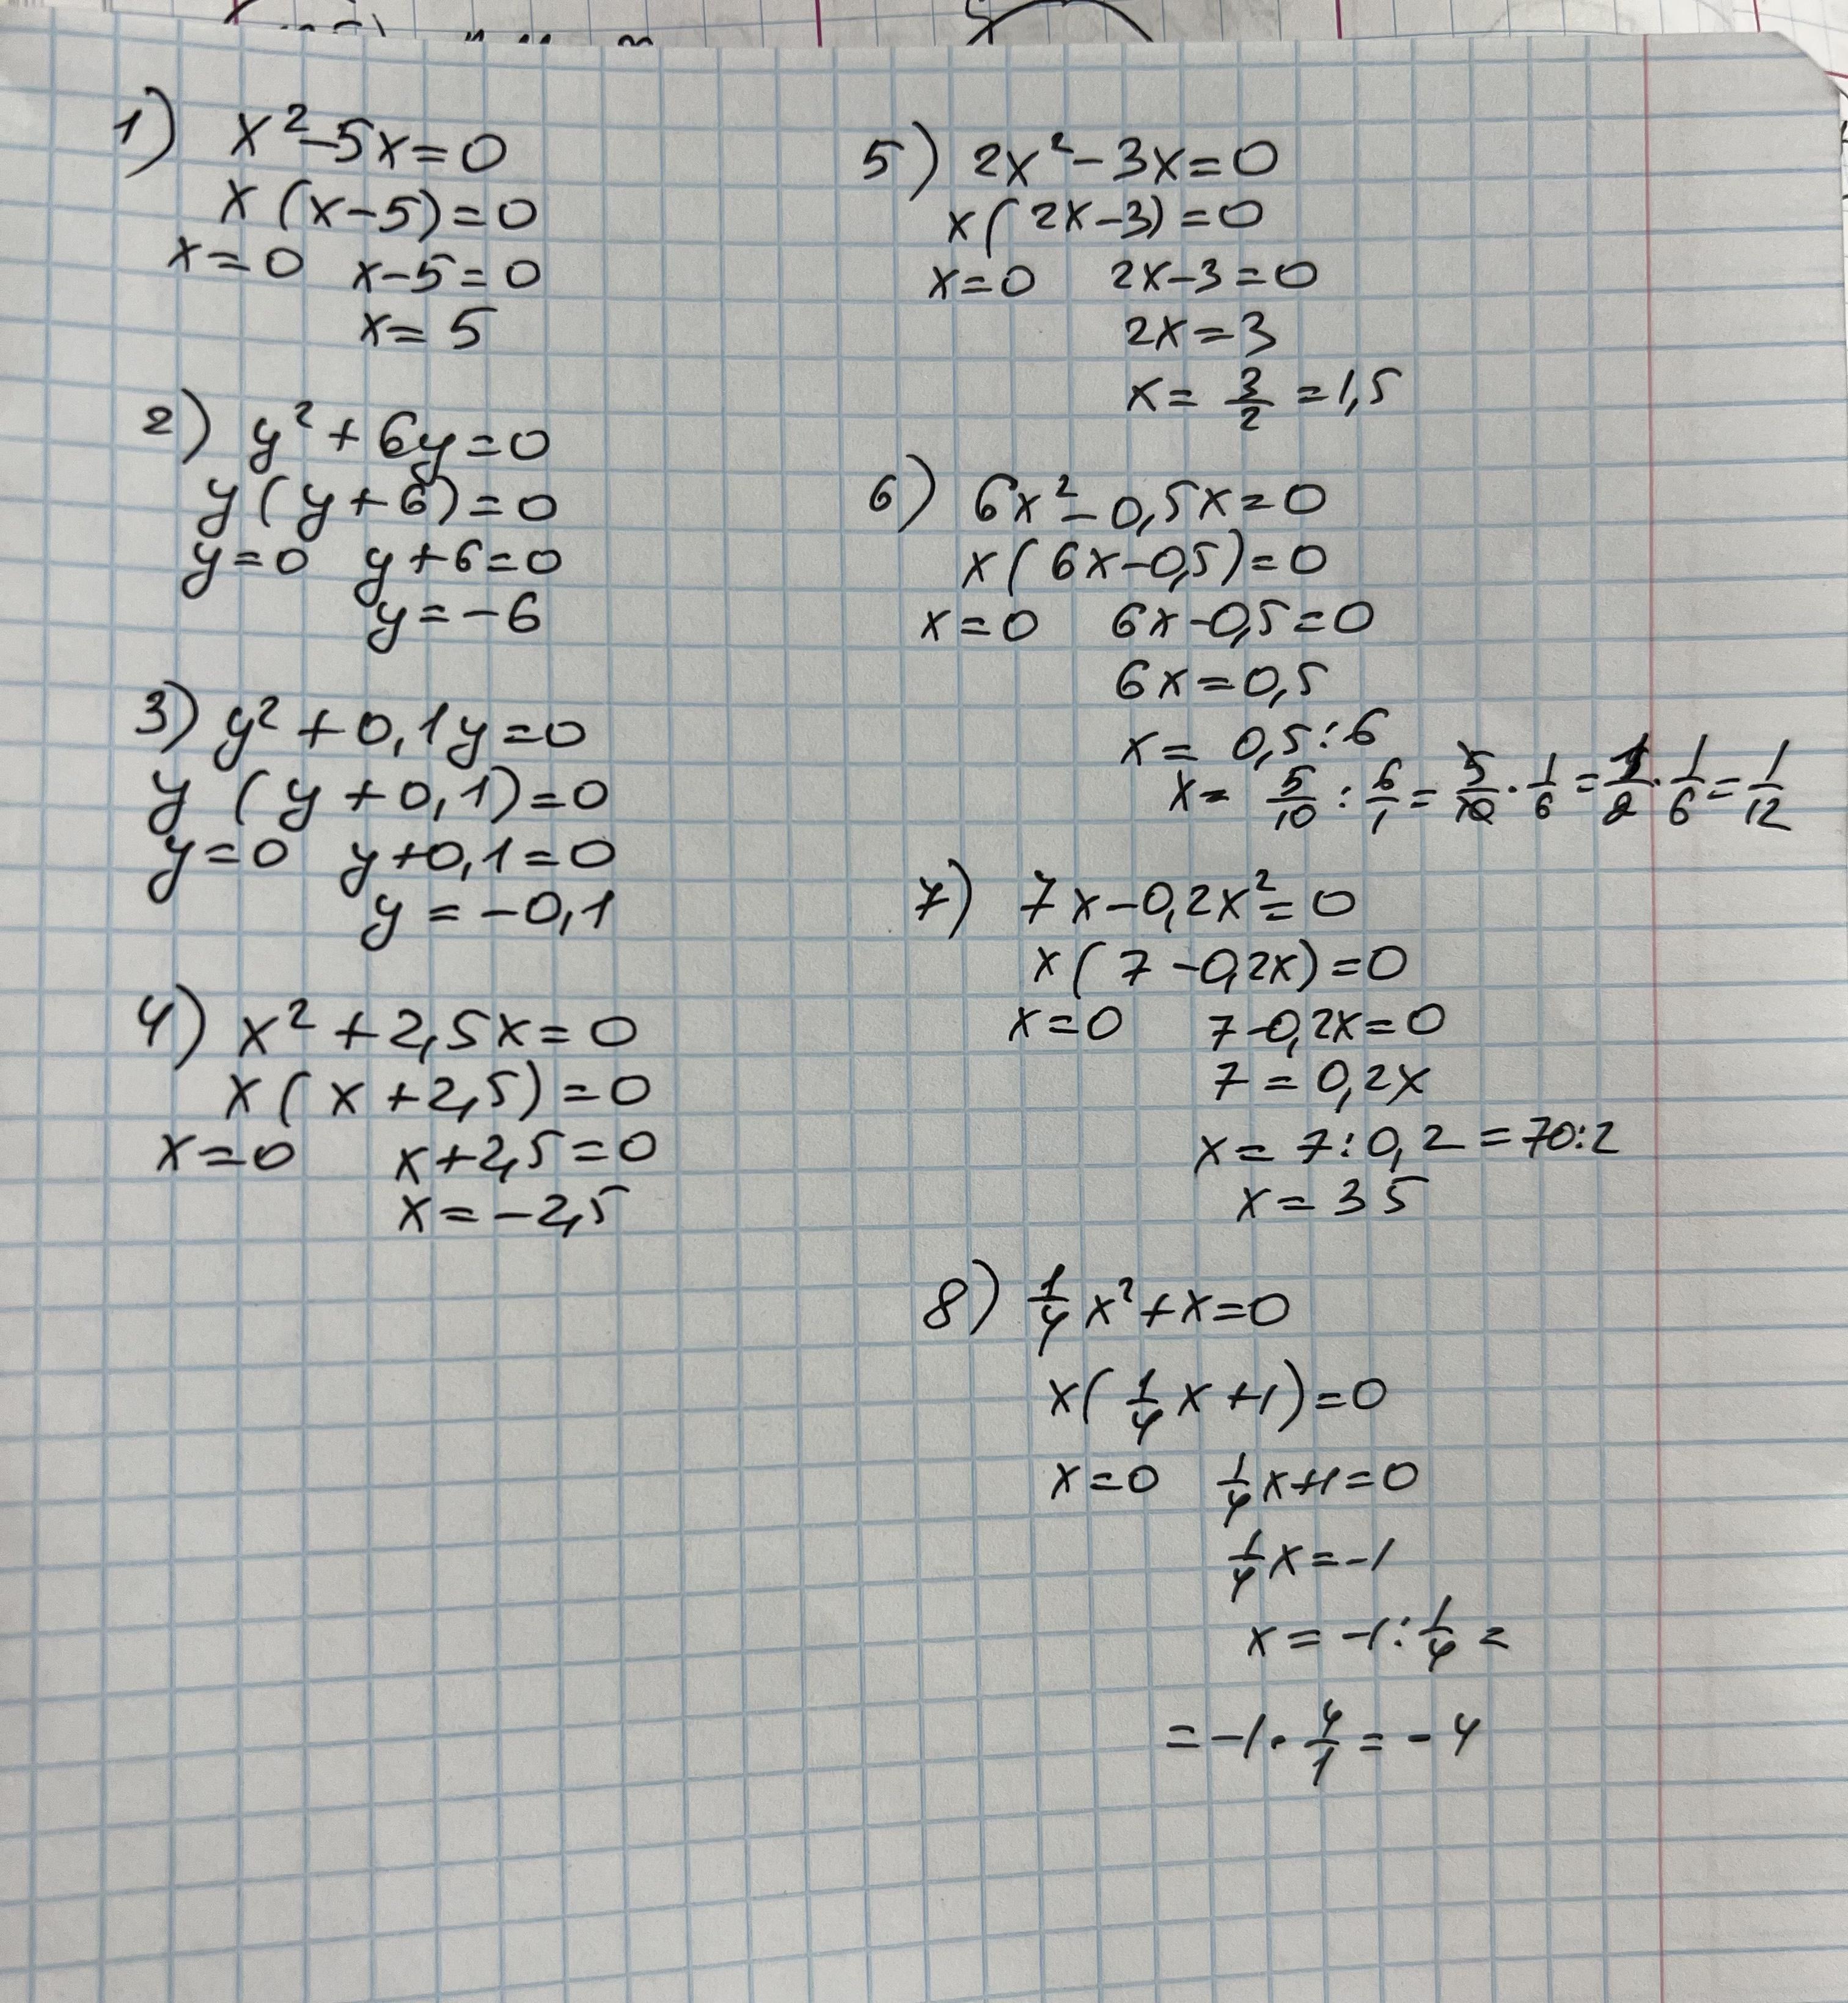 1) x²-5x=0
x(x-5)=0
x=0 x-5=0
x=5
2) y²+6y=0
y(y+6)=0
y=0 y+6=0
y=-6
3) y²+0,1y=0
y(y+0,1)=0
y=0 y+0,1=0
y=-0,1
4) x²+2,5x=0
x(x+2,5)=0
x=0 x+2,5=0
x=-2,5
5) 2x²-3x=0
x(2x-3)=0
x=0 2x-3=0
2x=3
x=3/2=1,5
6) 6x²-0,5x=0
x(6x-0,5)=0
x=0 6x-0,5=0
6x=0,5
x=0,5:6
x=5/10:6/1=5/10·1/6=1/2·1/6=1/12
7) 7x-0,2x²=0
x(7-0,2x)=0
x=0 7-0,2x=0
7=0,2x
x=7:0,2=70:2
x=35
8) 1/4x²+x=0
x(1/4x+1)=0
x=0 1/4x+1=0
1/4x=-1
x=-1:1/4=
=-1·4/1=-4